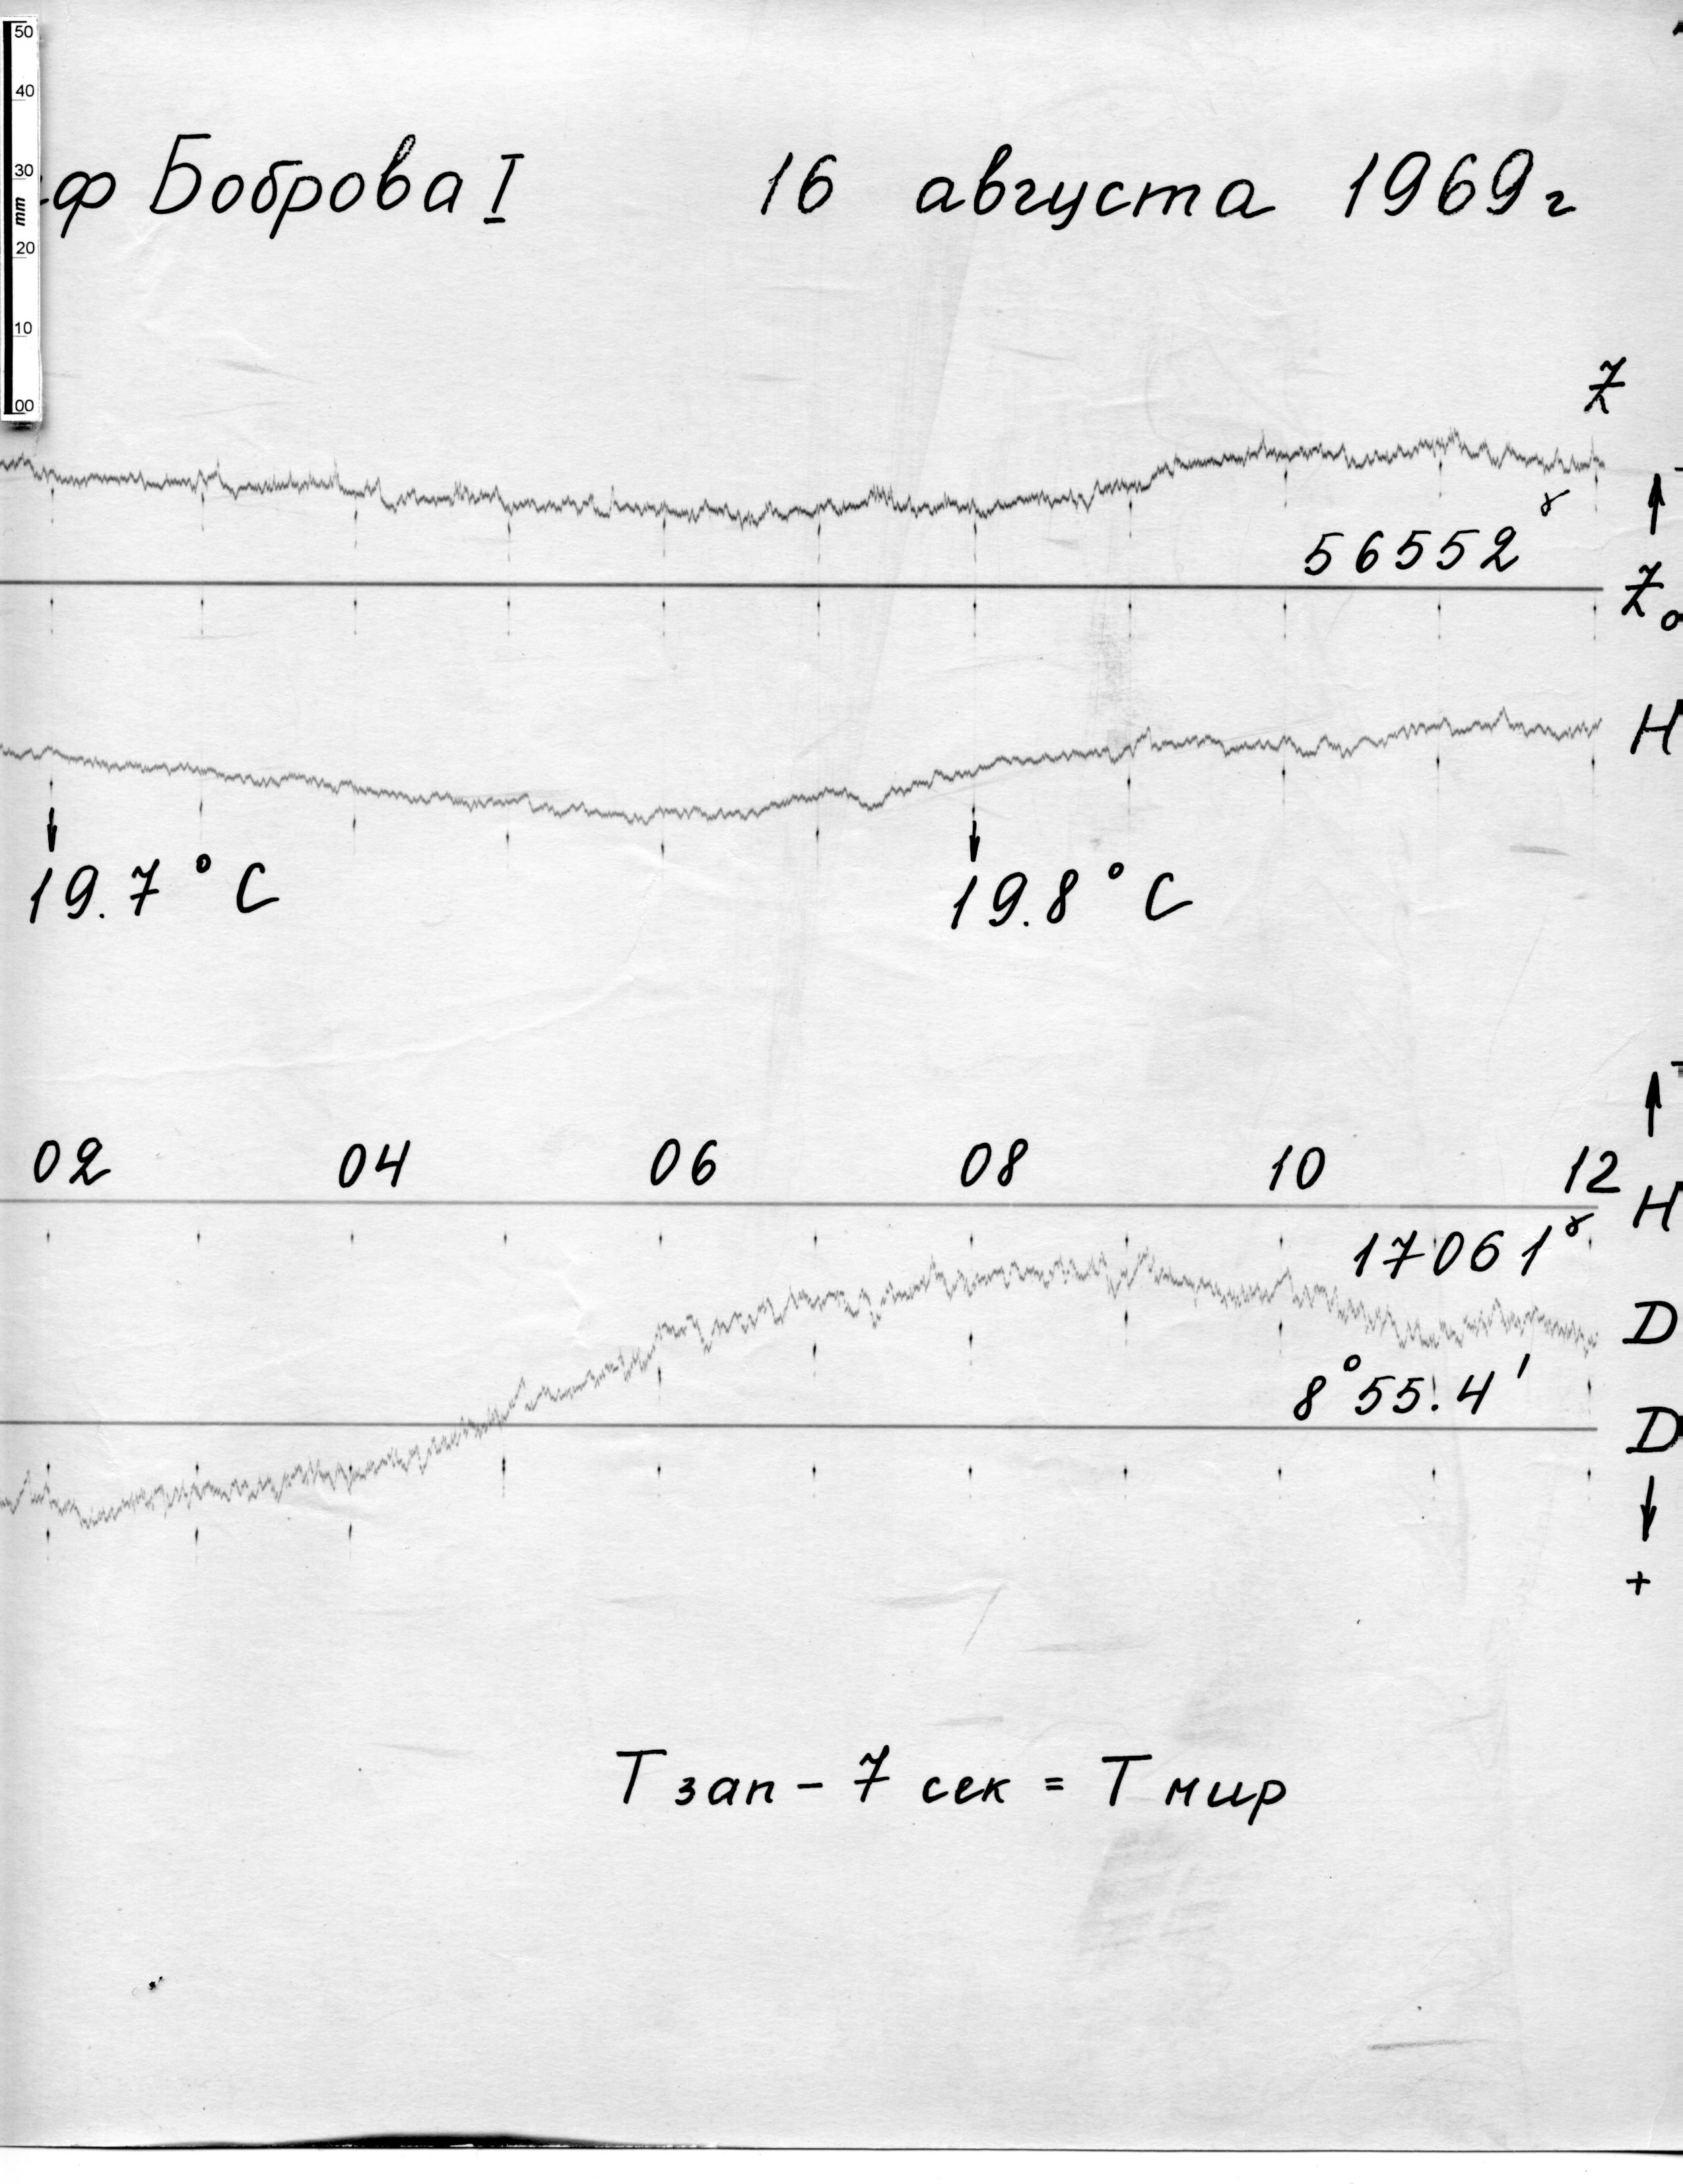 50
40
30
mm
20
10
00
ф Боброва I 16 августа 1969 г
Z
56552 γ
Z₀
H
19.7 °C 19.8 °C
02 04 06 08 10 12
H
17061 γ
D
8°55.4'
D
+
T зап – 7 сек = T мир